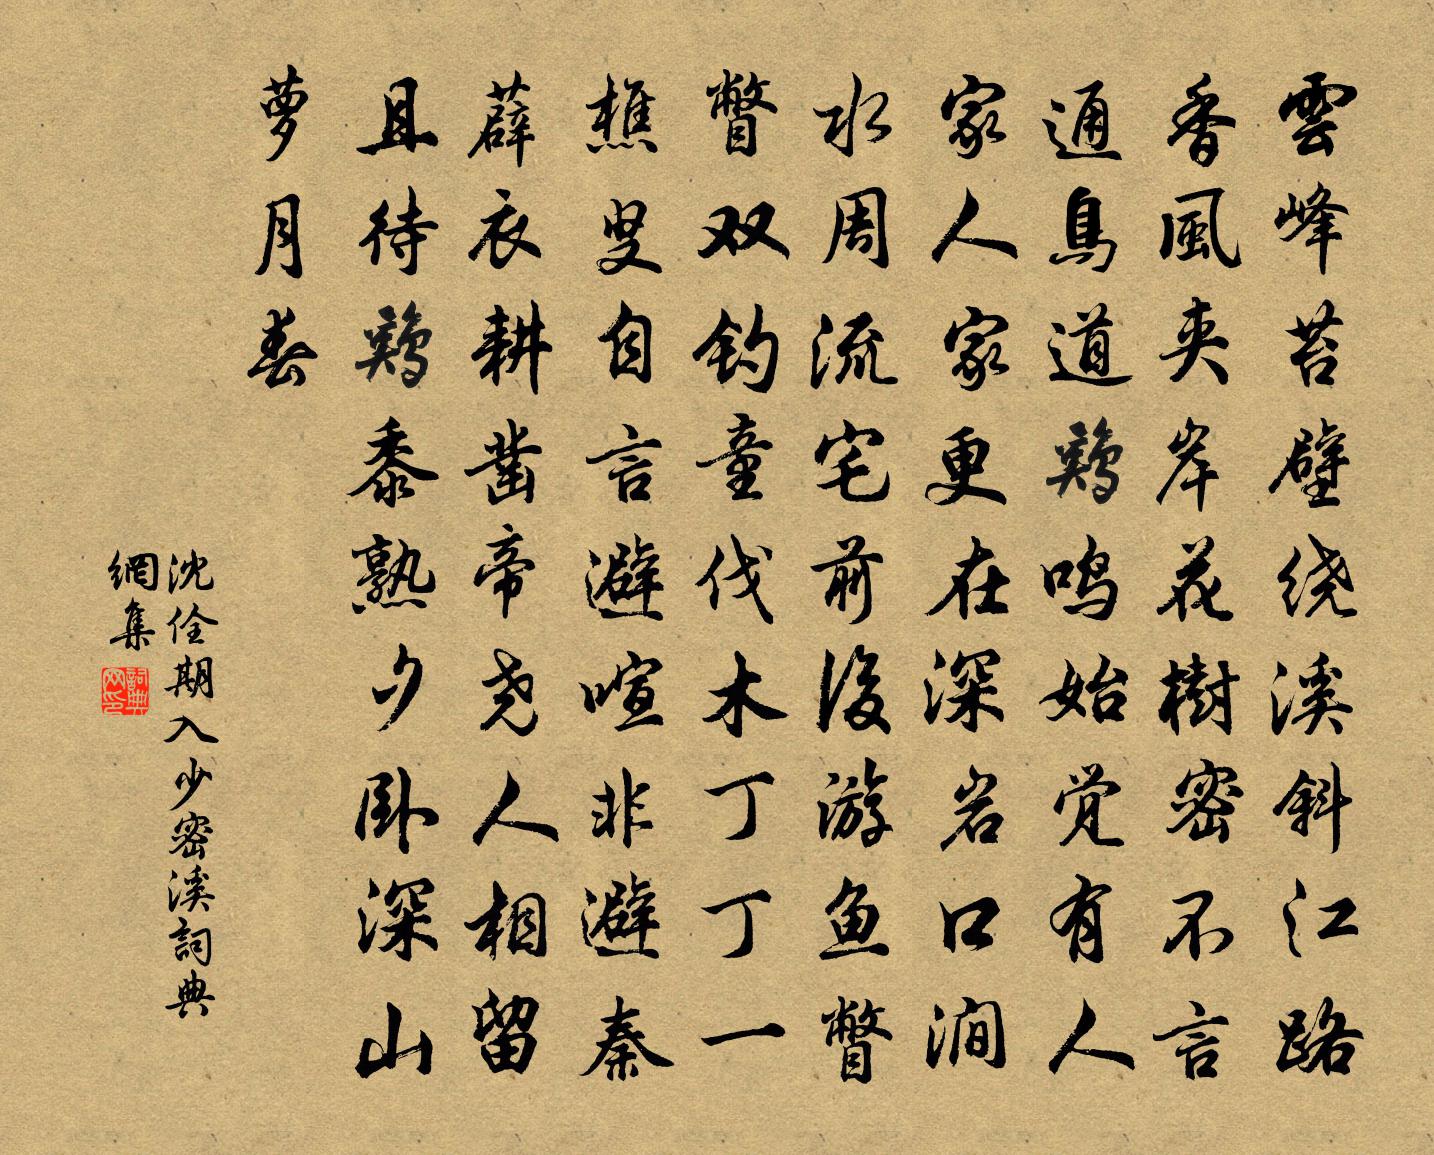 雲峰苔壁绕溪斜江路
香風夹岸花樹密不言
通鳥道鷄鸣始觉有人
家人家更在深岩口澗
水周流宅前後游鱼瞥
瞥双钓童伐木丁丁一
樵叟自言避喧非避秦
薜衣耕凿帝尧人相留
且待鷄黍熟夕卧深山
萝月春
沈佺期入少密溪詞典
網集
詞典
网印